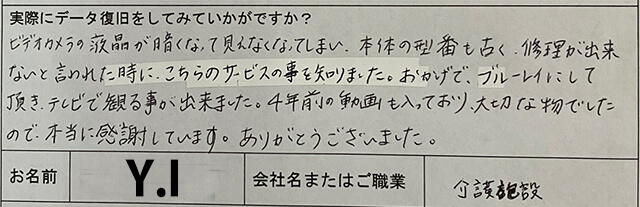 実際にデータ復旧をしてみていかがですか?
ビデオカメラの液晶が暗くなって見えなくなってしまい、本体の型番も古く、修理が出来
ないと言われた時に、こちらのサービスの事を知りました。おかげで、ブルーレイにして
頂き、テレビで観る事が出来ました。4年前の動画も入っており、大切な物でした
ので、本当に感謝しています。ありがとうございました。
お名前 Y.I 会社名またはご職業 介護施設